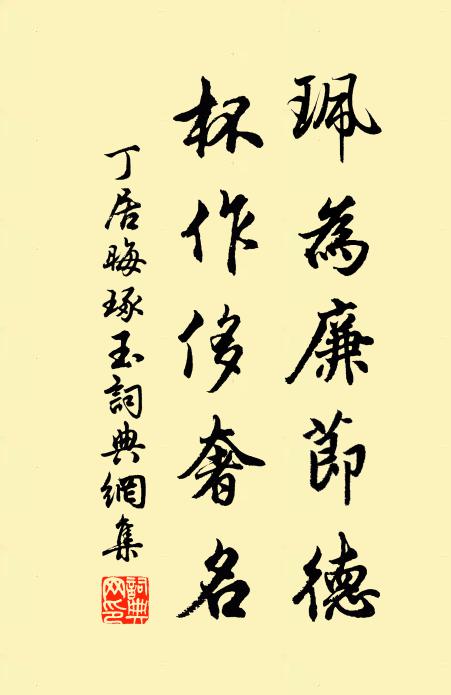 珮為廉節德
杯作侈奢名
丁居晦琢玉詞典網集
詞典網印